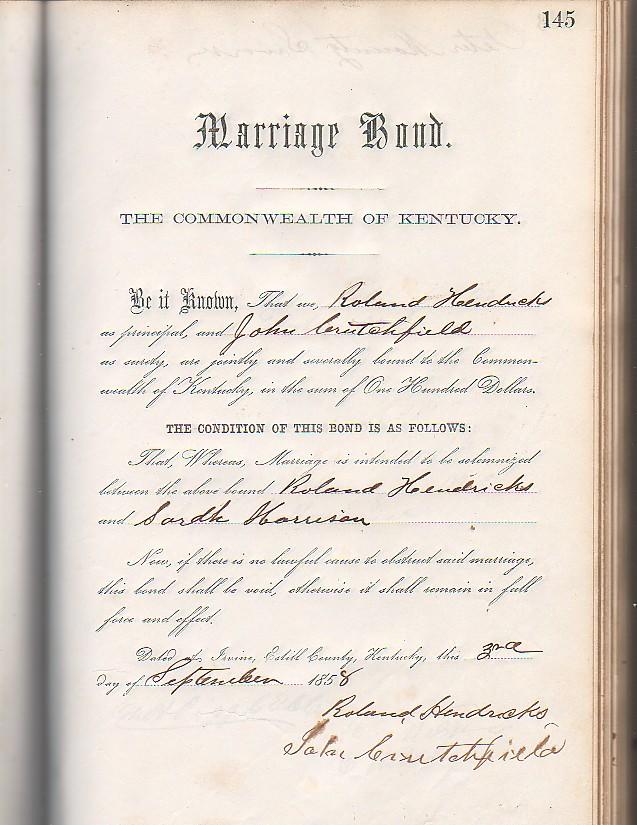 145
Marriage Bond.
THE COMMONWEALTH OF KENTUCKY.
Be it Known, That we, Roland Hendricks
as principal, and John Crutchfield
as surety, are jointly and severally bound to the Common-
wealth of Kentucky, in the sum of One Hundred Dollars.
THE CONDITION OF THIS BOND IS AS FOLLOWS:
That, Whereas, Marriage is intended to be solemnized
between the above bound Roland Hendricks
and Harrison
Now, if there is no lawful cause to obstruct said marriage,
this bond shall be void, otherwise it shall remain in full
force and effect.
Dated at Irvine, Estill County, Kentucky, this 3rd
day of September 1858
Roland Hendricks
John Crutchfield